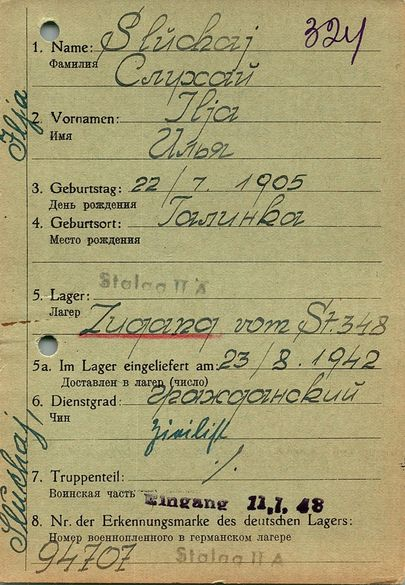 324
1. Name: Sluchaj
Фамилия Слухай
2. Vornamen: Ilja
Имя Илья
3. Geburtstag: 22/7. 1905
День рождения
4. Geburtsort: Галинка
Место рождения
Stalag II A
5. Lager:
Лагер Zugang vom St. 348
5a. Im Lager eingeliefert am: 23/8. 1942
Доставлен в лагер (число)
6. Dienstgrad: Гражданский
Чин Zivilist
7. Truppenteil: ./.
Воинская часть Eingang 11.7. 48
8. Nr. der Erkennungsmarke des deutschen Lagers:
Номер военнопленного в германском лагере
94707 Stalag II A
Ilja
Sluchaj,